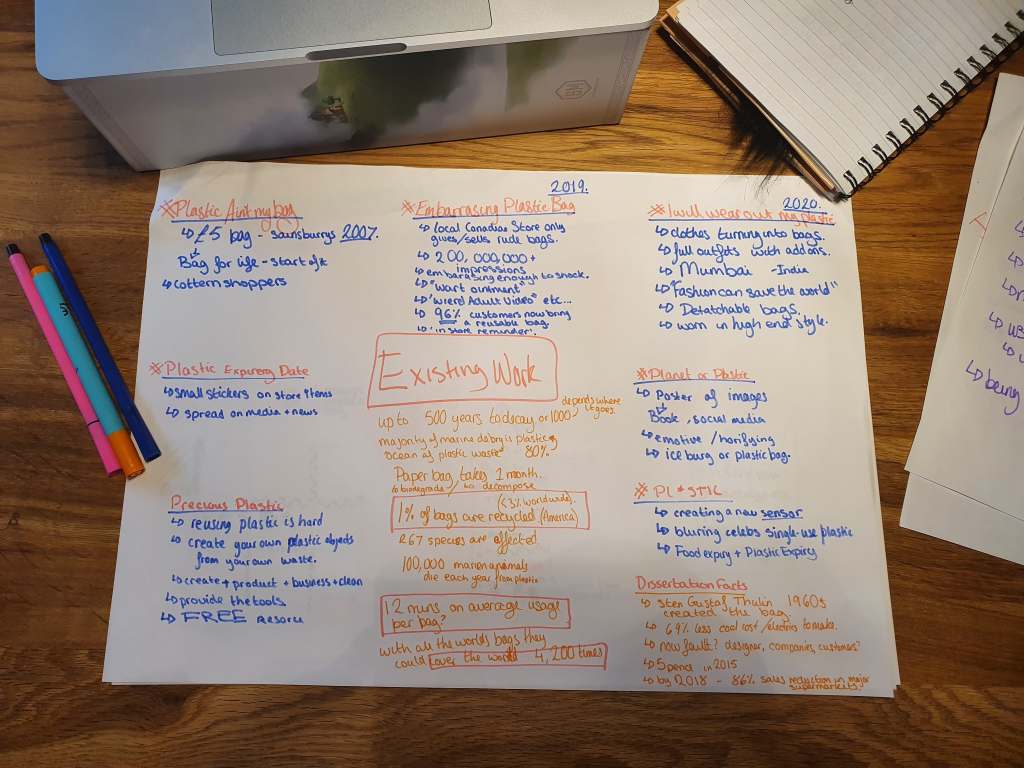 ※Plastic Aint my bag
↳ £5 bag - sainsburys 2007.
↳ Bag for life - start of it
↳ cottern shoppers
2019.
※Embarrasing Plastic Bag
↳ local Canadian Store only
gives/sells rude bags.
↳ 200,000,000+
impressions
↳ embarasing enough to shock.
↳ "wart ointment"
↳ 'wierd Adult Video" etc...
↳ 96% customers now bring
a reusable bag.
↳ 'in store reminder'.
2020.
※I will wear out my plastic
↳ clothes turning into bags.
↳ full outfits with add ons.
↳ Mumbai - India
↳ "Fashion can save the world"
↳ Detatchable bags.
↳ worn in high end style.
※Plastic Expirery Date
↳ small stickers on store items
↳ spread on media + news
Existing Work
up to 500 years to decay or 1000, depends where
it goes.
majority of marine debry is plastic,
ocean is plastic waste 80%.
Paper bag takes 1 month.
to biodegrade/ to decompose
(<3% worldwide).
1% of bags are recycled (America)
267 species are affected
100,000 marien animals
die each year from plastic
12 mins on average usage
per bag?
with all the worlds bags they
could cover the world 4,200 times
※Planet or Plastic
↳ Poster of images
↳ Book, social media
↳ emotive / horifying
↳ ice burg or plastic bag.
※ PL*STIC
↳ creating a new sensor
↳ bluring celebs single-use plastic
↳ Food expiry + Plastic Expiry
Precious Plastic
↳ reusing plastic is hard
↳ create your own plastic objects
from your own waste.
↳ create + product + business + clean
↳ provide the tools
↳ FREE
Dissertation Facts
↳ Sten Gustaf Thulin 1960s
created the bag
↳ 69% less cost/electrics to make.
↳ now fault? designer, companies, customers?
↳ 5 pence in 2015
↳ by 2018 - 86% sales reduction in major
supermarkets.
being